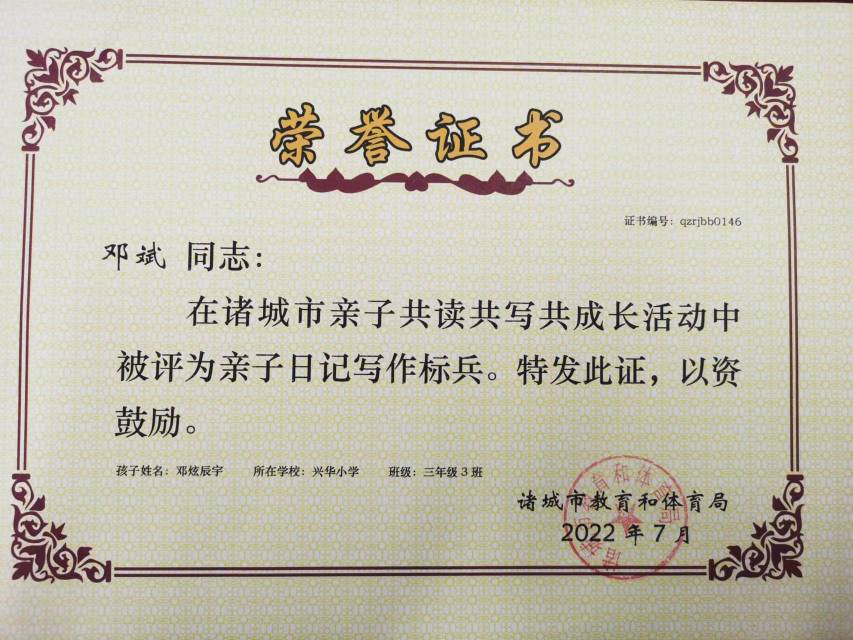 荣誉证书
证书编号：qzrjbb0146
邓斌 同志：
在诸城市亲子共读共写共成长活动中
被评为亲子日记写作标兵。特发此证，以资
鼓励。
孩子姓名：邓炫辰宇 所在学校：兴华小学 班级：三年级3班
诸城市教育和体育局
2022 年 7 月
诸城市教育和体育局